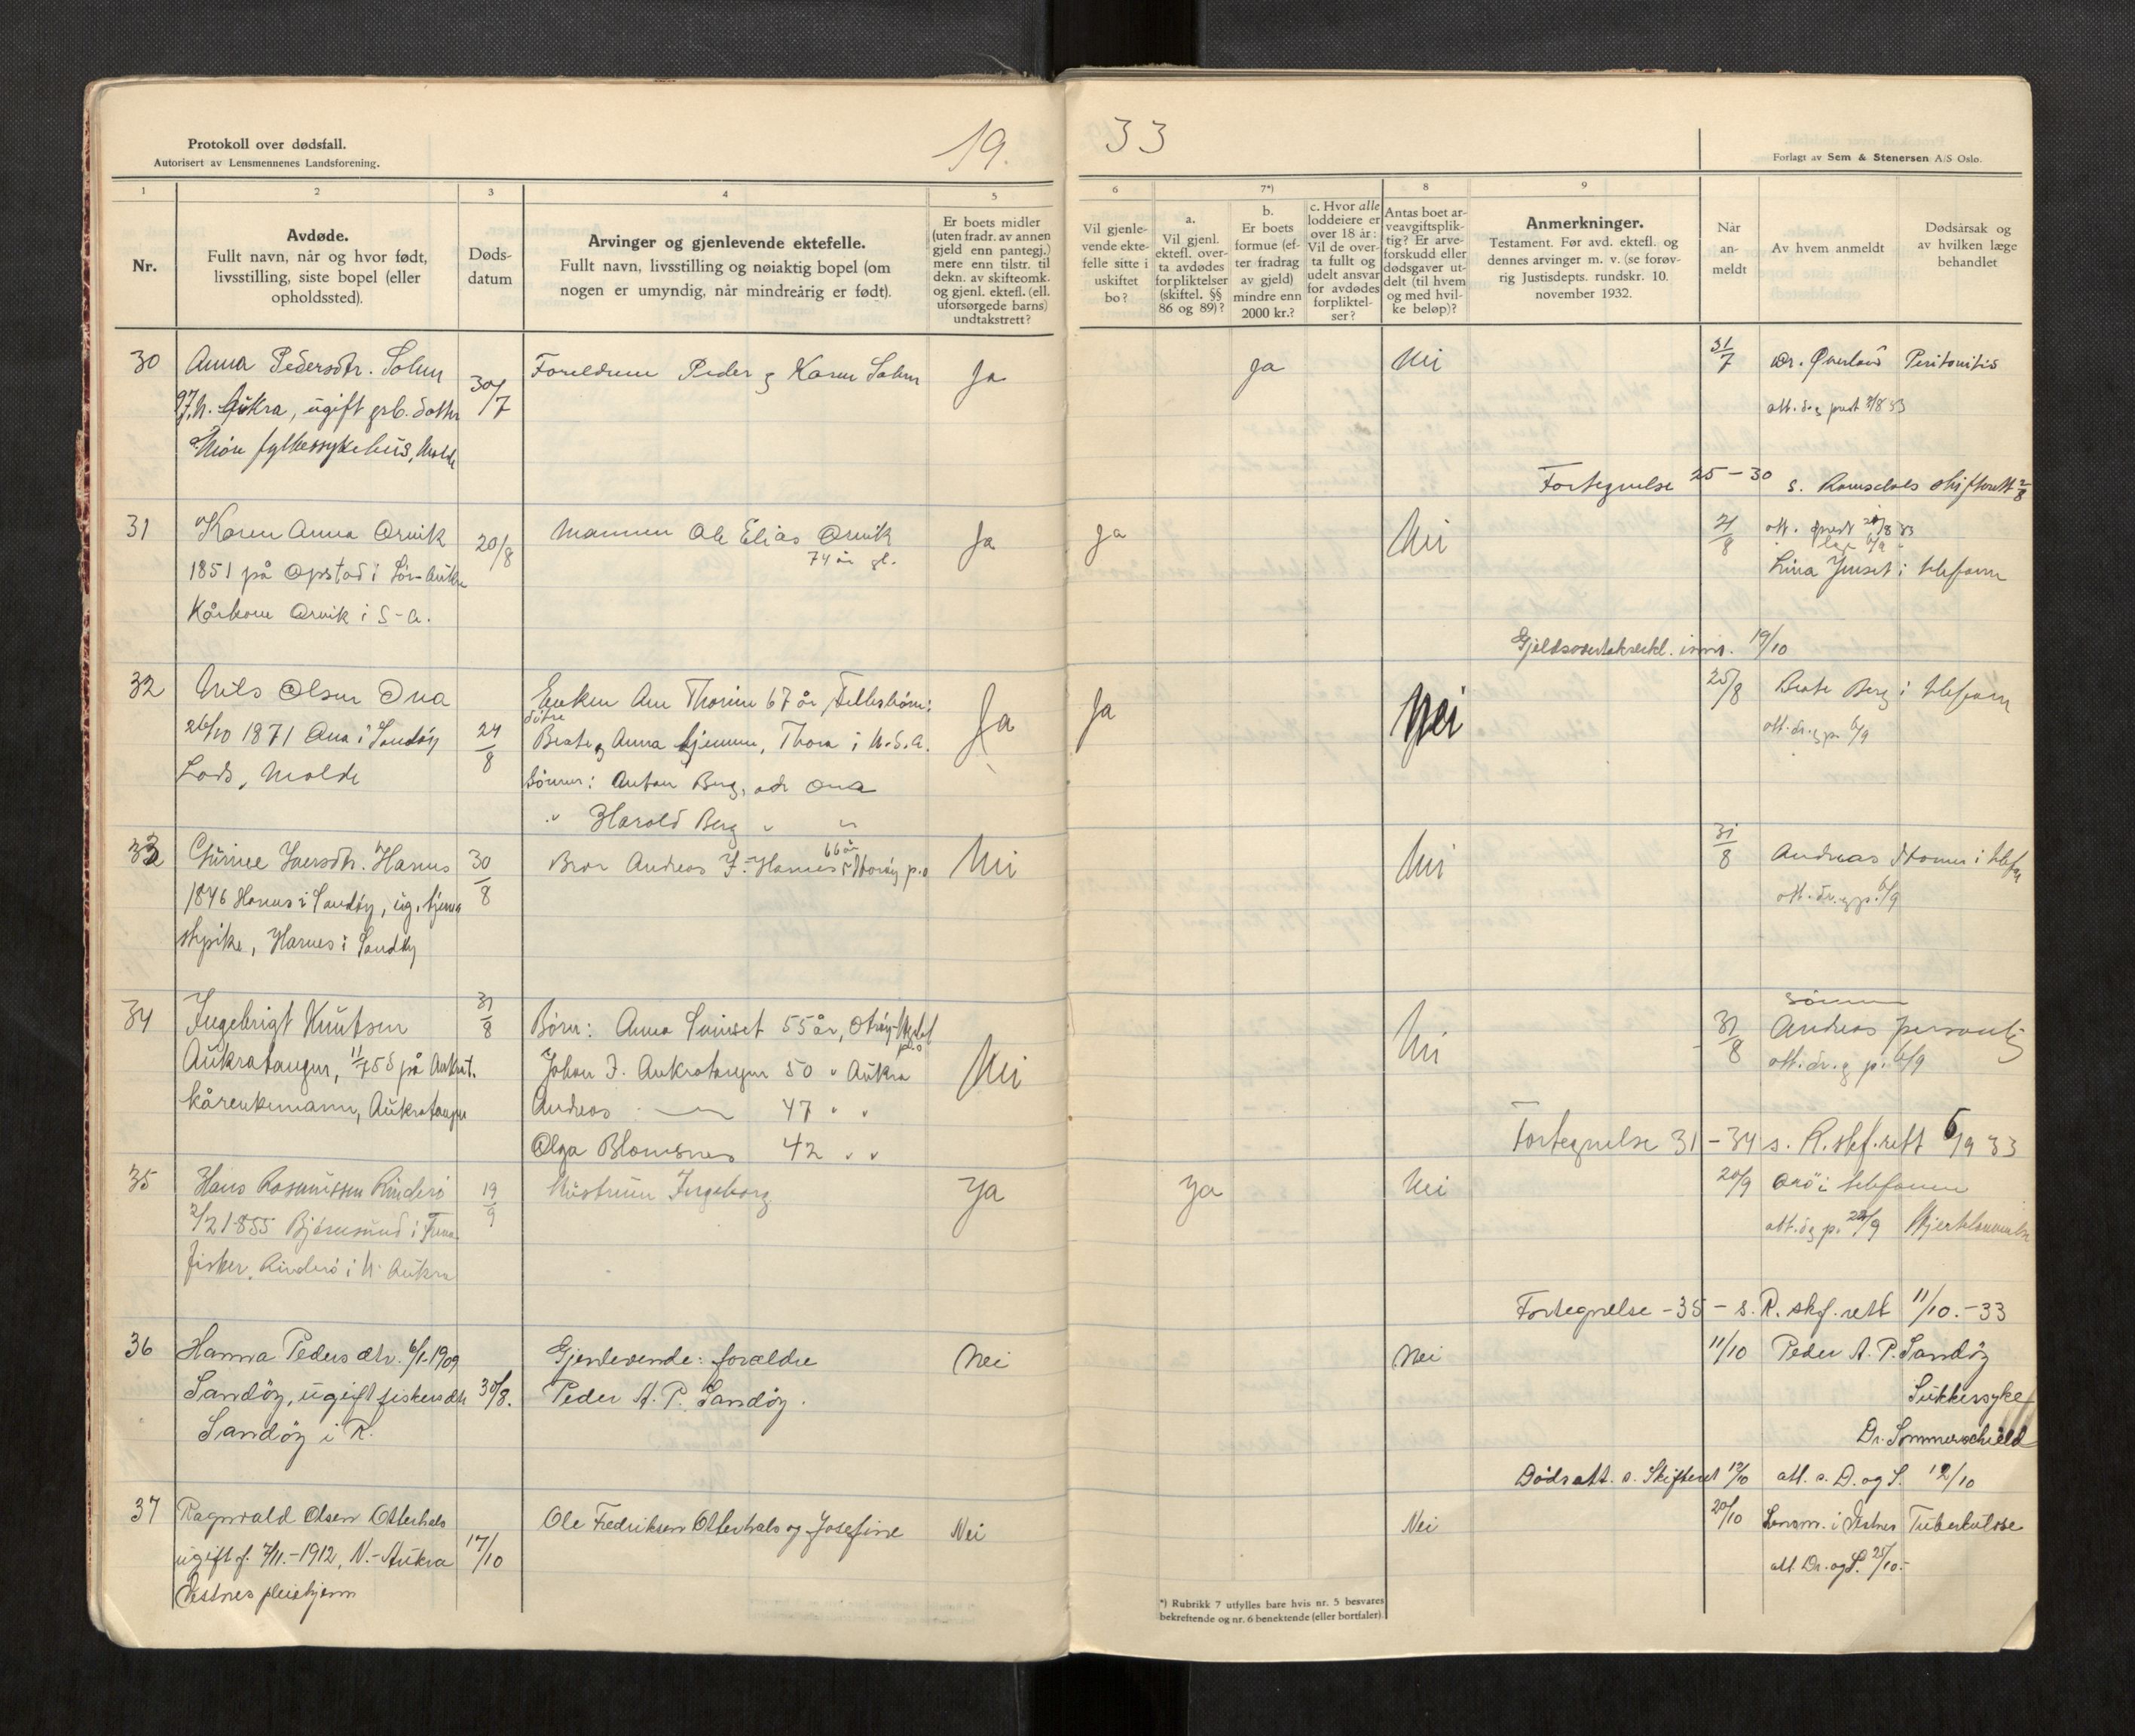 Protokoll over dødsfall.
Autorisert av Lensmennenes Landsforening.
19.
33
Forlagt av Sem & Stenersen A/S Oslo.
1
2
3
4
5
6
7*)
8
9
Nr.
Avdøde.
Fullt navn, når og hvor født,
livsstilling, siste bopel (eller
opholdssted).
Døds-
datum
Arvinger og gjenlevende ektefelle.
Fullt navn, livsstilling og nøiaktig bopel (om
nogen er umyndig, når mindreårig er født).
Er boets midler
(uten fradr. av annen
gjeld enn pantegj.)
mere enn tilstr. til
dekn. av skifteomk.
og gjenl. ektefl. (ell.
uforsørgede barns)
undtakstrett?
Vil gjenle-
vende ekte-
felle sitte i
uskiftet
bo?
a.
Vil gjenl.
ektefl. over-
ta avdødes
forpliktelser
(skiftel. §§
86 og 89)?
b.
Er boets
formue (ef-
ter fradrag
av gjeld)
mindre enn
2000 kr.?
c. Hvor alle
loddeiere er
over 18 år:
Vil de over-
ta fullt og
udelt ansvar
for avdødes
forpliktel-
ser?
Antas boet ar-
veavgiftsplik-
tig? Er arve-
forskudd eller
dødsgaver ut-
delt (til hvem
og med hvil-
ke beløp)?
Anmerkninger.
Testament. Før avd. ektefl. og
dennes arvinger m. v. (se forøv-
rig Justisdepts. rundskr. 10.
november 1932.
Når
an-
meldt
Av hvem anmeldt
Dødsårsak og
av hvilken læge
behandlet
30
Anna Pedersdtr. Solem
Aukra, ugift grb. datter
Möre fylkessykehus, Molde
30/7
Foreldrene Peder og Karen Solem
Ja
Ja
Nei
31/7
Dr. Överland Peritonitis
att. dr. g prest 2/8 33
Fortegnelse 25 - 30 s. Romsdals skifterett 2/8
31
Karen Anna Orvik
1851 på Opstad i Sör-Aukra
Kårkone Orvik i S-A.
20/8
Mannen Ole Elias Orvik
74 år gl.
Ja
Ja
Nei
21/8
att. prest 24/8 33
i telefonen
Gjeldsovertakserkl. inns. 19/10
32
Nils Olsen Ona
26/10 1871 Ona i Sandöy
Lods, Molde
24/8
Enken Ane Thorine 67 år, Fellesbörn:
dötre
Beate g Anna hjemme, Thora i U.S.A.
Sönner: Anton Berg, adr Ona
" Harold Berg " "
Ja
Ja
Nei
25/8
Beate Berg i telefonen
att. dr. g p. 6/9
33
Gurine Iversdtr. Harnes
1846 Harnes i Sandöy, ug. tjeneste
pike, Harnes i Sandöy
30/8
Bror Andreas I. Harnes 66 år p.o
Nei
Nei
31/8
Andreas Harnes i telefon
att. dr. g p. 6/9
34
Ingebrigt Knutsen
Aukratangen, på Aukrat.
kårenkemann, Aukratangen
31/8
Börn: Anna 55 år,
p.o
Johan I. Aukratangen 50 " Aukra
Andreas — 47 " "
Olga Blomsnes 42 " "
Nei
Nei
31/8
sönnen
Andreas personlig
att. dr. g p. 6/9
Fortegnelse 31 - 34 s. R. skf. rett 6/9 33
35
Hans Rasmussen Rinderö
2/2 1855 Björnsund i Fræna
fisker, Rinderö i N. Aukra
19/9
Hustruen Ingeborg
Ja
Ja
Nei
20/9
Orö i telefonen
att. dg p. 29/9 Hjertelammelse
Fortegnelse - 35 - s. R. skf. rett 11/10. - 33
36
Hanna Peders dtr. 6/1-1909
Sandöy, ugift fiskers dtr
Sandöy i R.
30/8.
Gjenlevende: foreldre
Peder A. P. Sandöy.
Nei
Nei
11/10
Peder A. P. Sandöy
Sukkersyke
Dr. Sommerschield
Dödsatt. s. Skifteret 12/10 att. s. D. og S. 12/10
37
Ragnvald Olsen Otterhals
ugift f. 7/11.-1912, N.-Aukra
Vestnes pleiehjem
17/10
Ole Fredriksen Otterhals og Josefine
Nei
Nei
20/10
Lensm. i Vestnes Tuberkulose
att Dr. og S. 25/10.-
*) Rubrikk 7 utfylles bare hvis nr. 5 besvares
bekreftende og nr. 6 benektende (eller bortfaler).